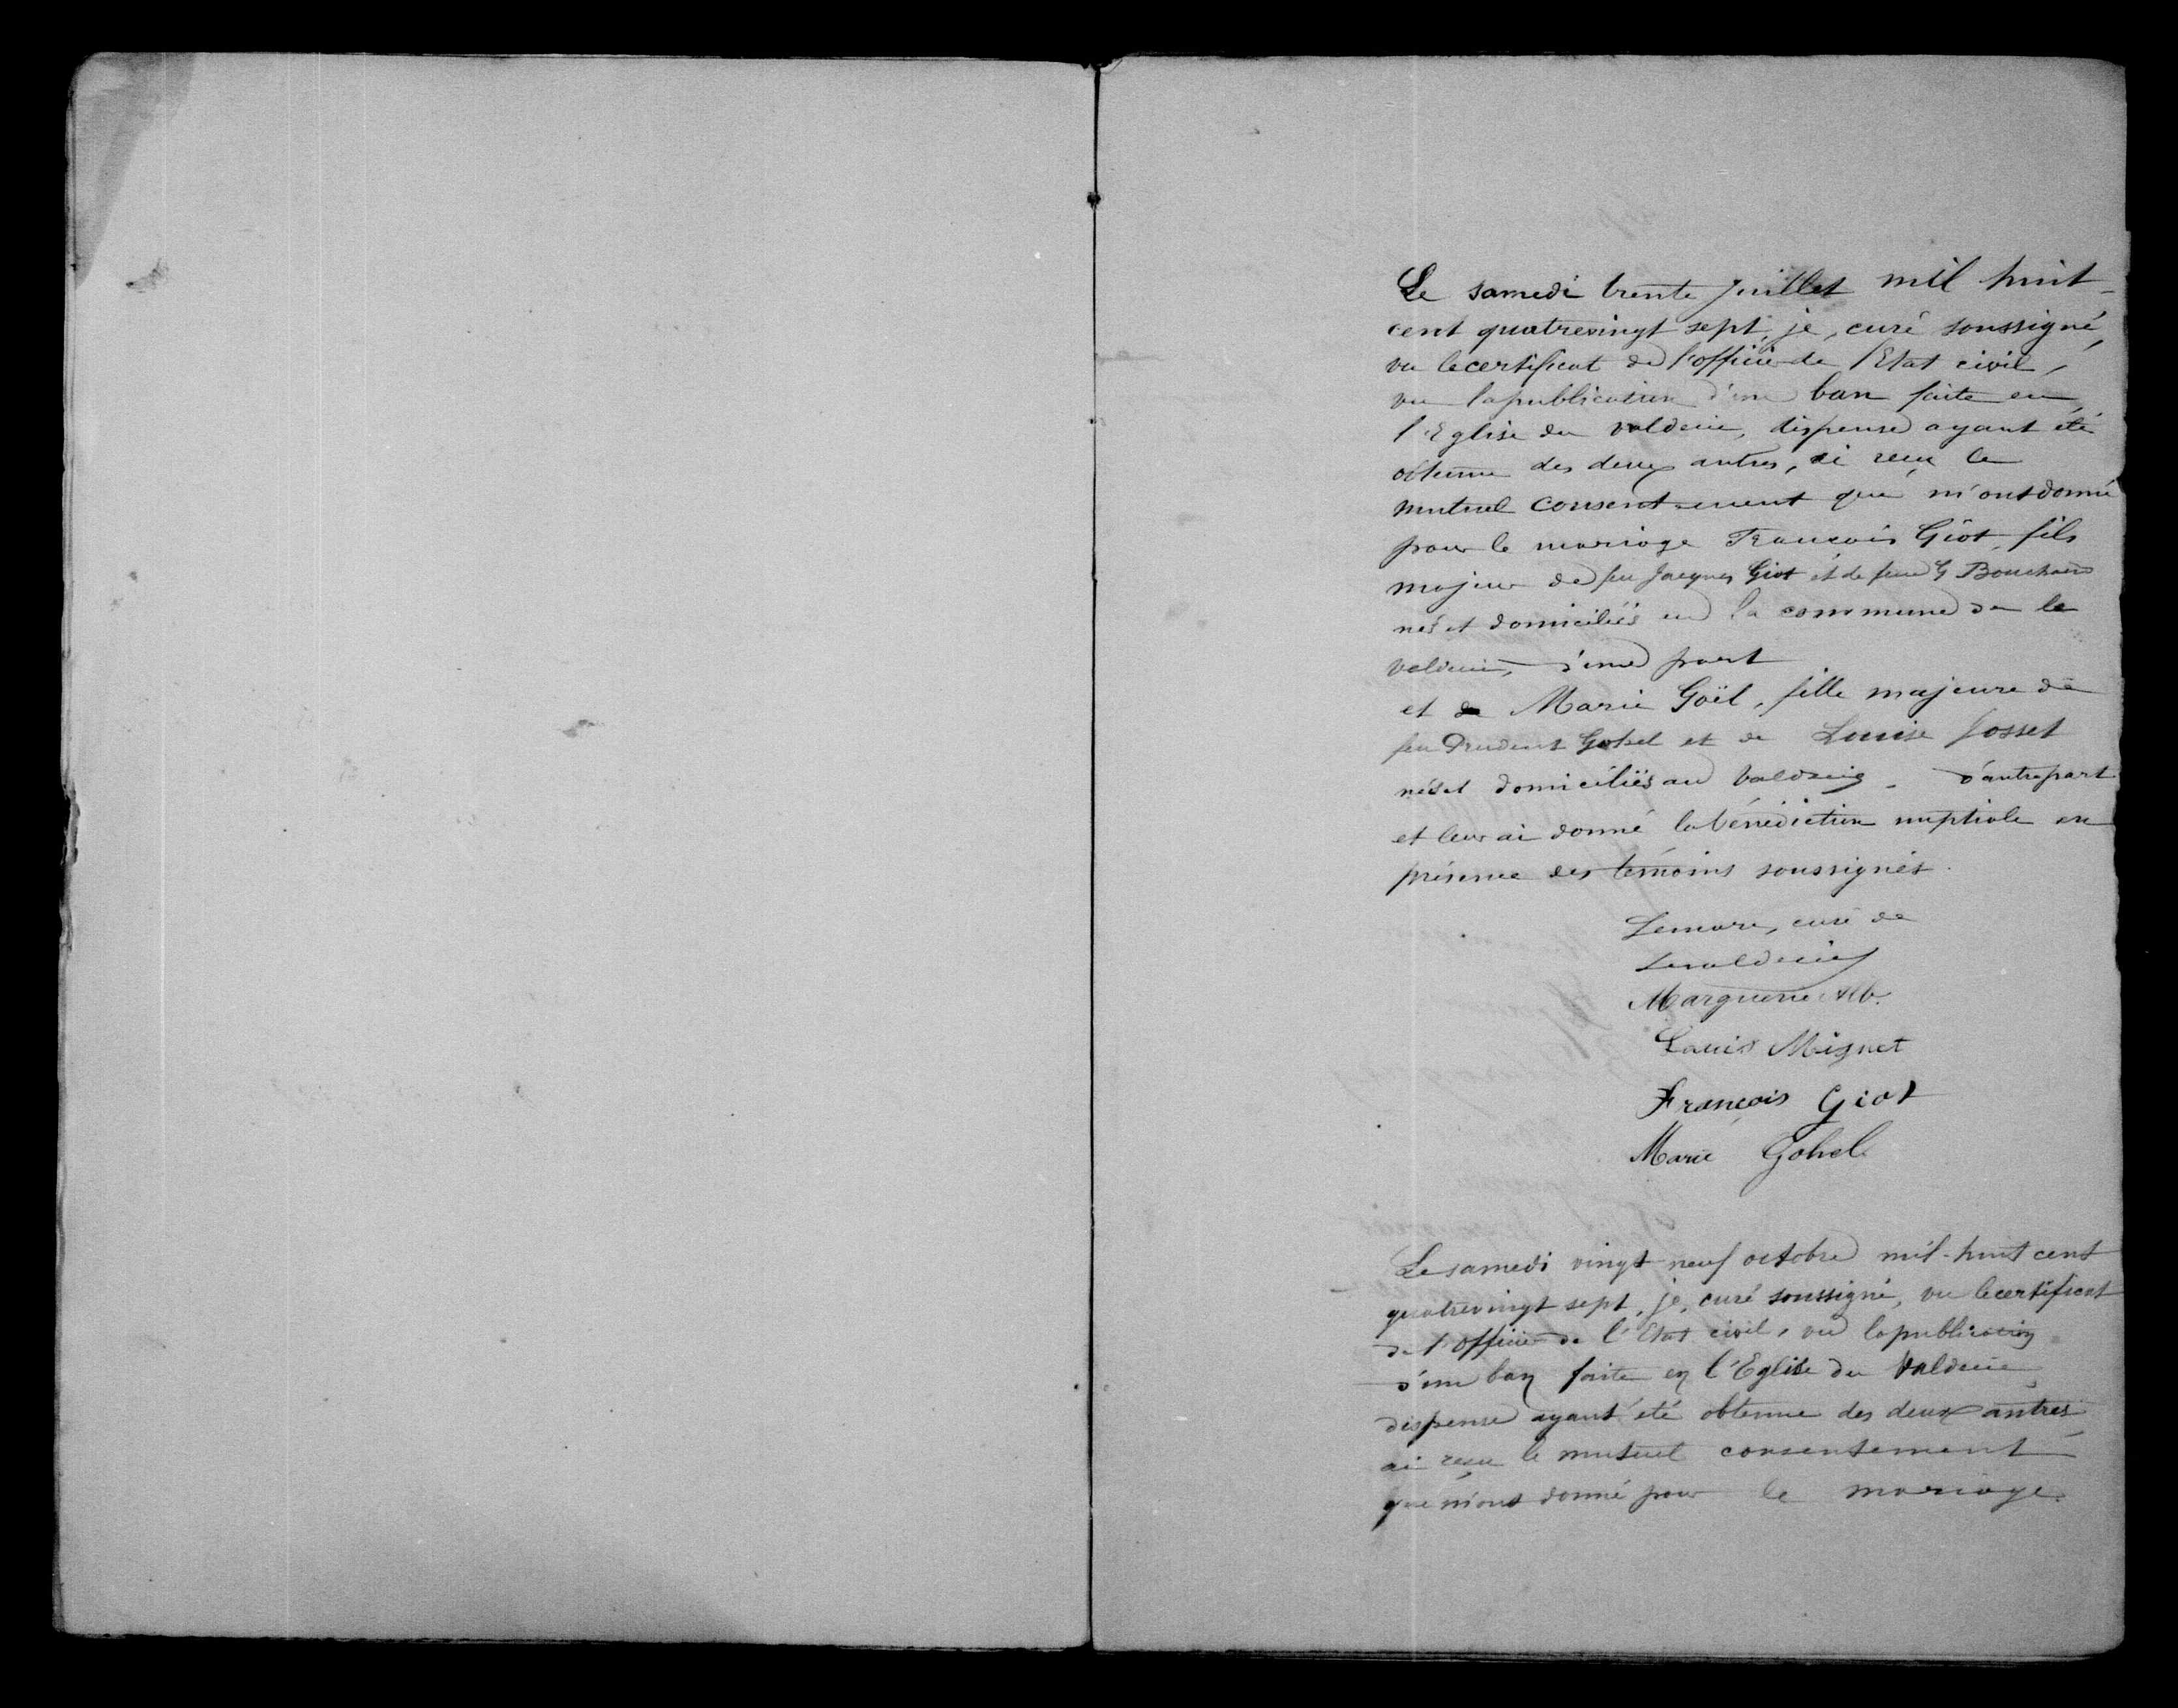 Le samedi trente juillet mil huit
cent quatrevingt sept, je, curé soussigné,
vu le certificat de l'officier de l'Etat civil,
vu la publication d'un ban faite en
l'Eglise du valdecie, dispense ayant été
obtenue des deux autres, ai reçu le
mutuel consentement que m'ont donné
pour le mariage François Giot, fils
majeur de feu Jacques Giot et de feue G
nés et domiciliés en la commune de le
valdecie, d'une part
et de Marie Goël, fille majeure de
feu Prudent Gohel et de Louise Josset
nés et domiciliés au Valdecie - d'autre part
et leur ai donné la bénédiction nuptiale en
présence des témoins soussignés.
Lemare, curé de
Levaldecie
Marguerie Alb.
Louis Mignet
François Giot
Marie Gohel
Le samedi vingt neuf octobre mil-huit cent
quatrevingt sept, je, curé soussigné, vu le certificat
de l'officier de l'Etat civil, vu la publication
d'un ban faite en l'Eglise du Valdecie,
dispense ayant été obtenue des deux autres
ai reçu le mutuel consentement
que m'ont donné pour le mariage